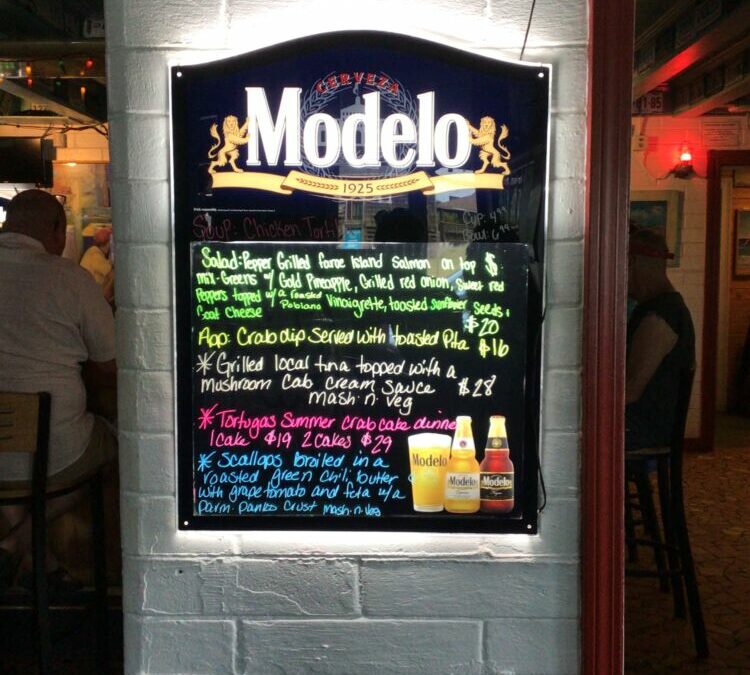 CERVEZA
Modelo
1925
Soup: Chicken Torti
Cup: 4.99
Bowl: 6.99
Salad: Pepper Grilled faroe Island Salmon on top $
mix-Greens w/ Gold Pineapple, Grilled red onion, Sweet red
Peppers topped w/ a roasted Poblano Vinaigrette, toasted Sunflower Seeds +
Goat Cheese $20
App: Crab dip Served with toasted Pita $16
* Grilled local tuna topped with a
Mushroom Cab cream Sauce $28
mash n veg
* Tortugas Summer crab cake dinner
1 cake $19 2 cakes $29
* Scallops broiled in a
roasted green chili butter
with grape tomato and feta w/a
parm. panko crust mash n veg
Modelo
Modelo
Modelo